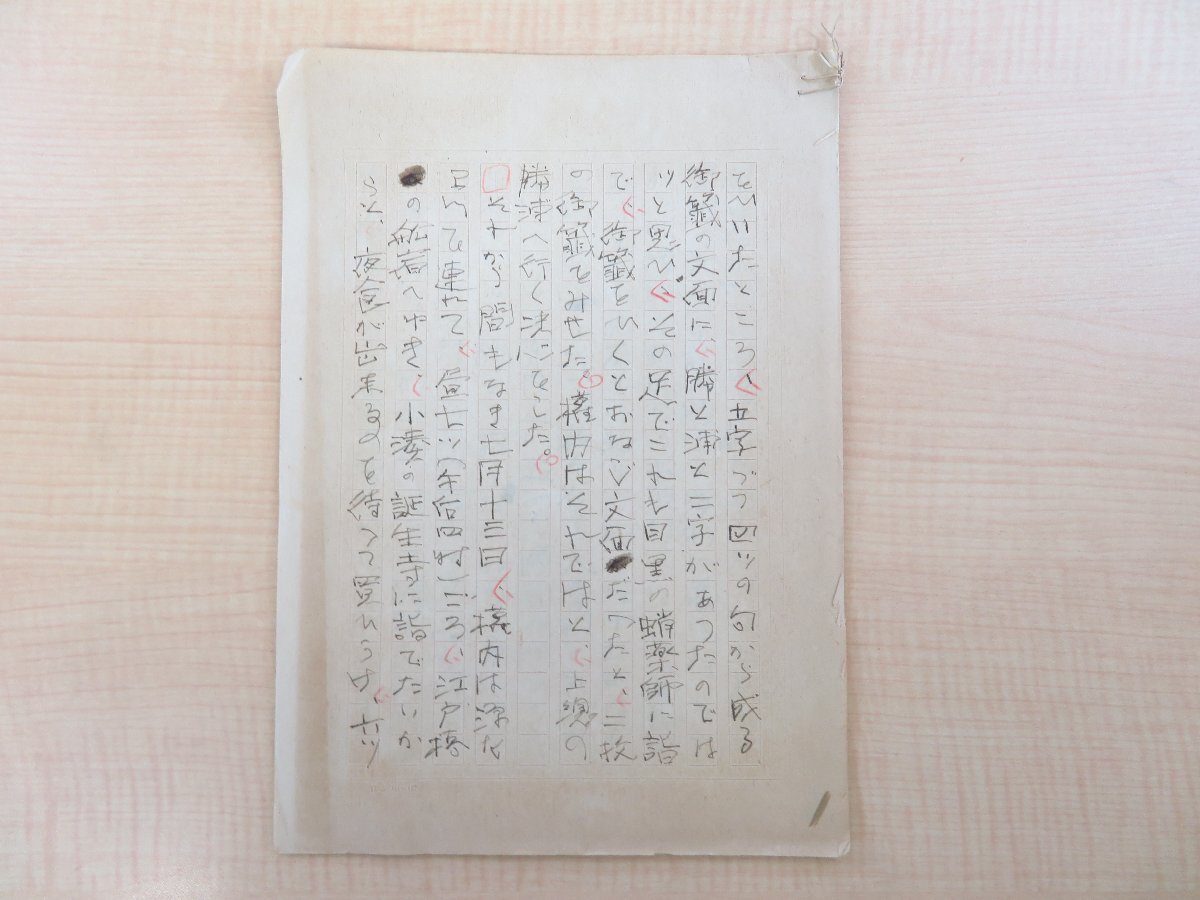 をひいたところ、五字づつ四ツの句から成る
御籤の文面に、勝と浦と二字があつたのでは
ツと思ひ、その足でこれも目黒の蛸薬師に詣
で、御籤をひくとおなじ文面だつたと、二枚
の御籤をみせた。権内はそれではと、上総の
勝浦へ行く決心をした。
それから間もなき七月十三日、権内は
て連れて、昼七ツ(午后四時)ごろ、江戸橋
の船宿へゆき、小湊の誕生寺に詣でたいか
らと、夜食が出来るのを待つて買ひうけ、六ツ